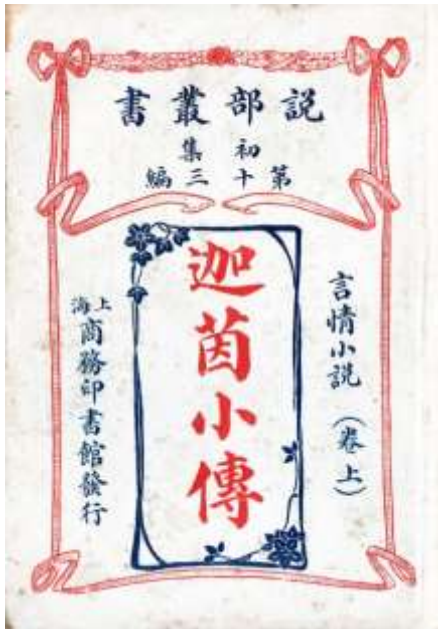 説部叢書
初集
第十三編
言情小説（卷上）
迦茵小傳
上海商務印書館發行